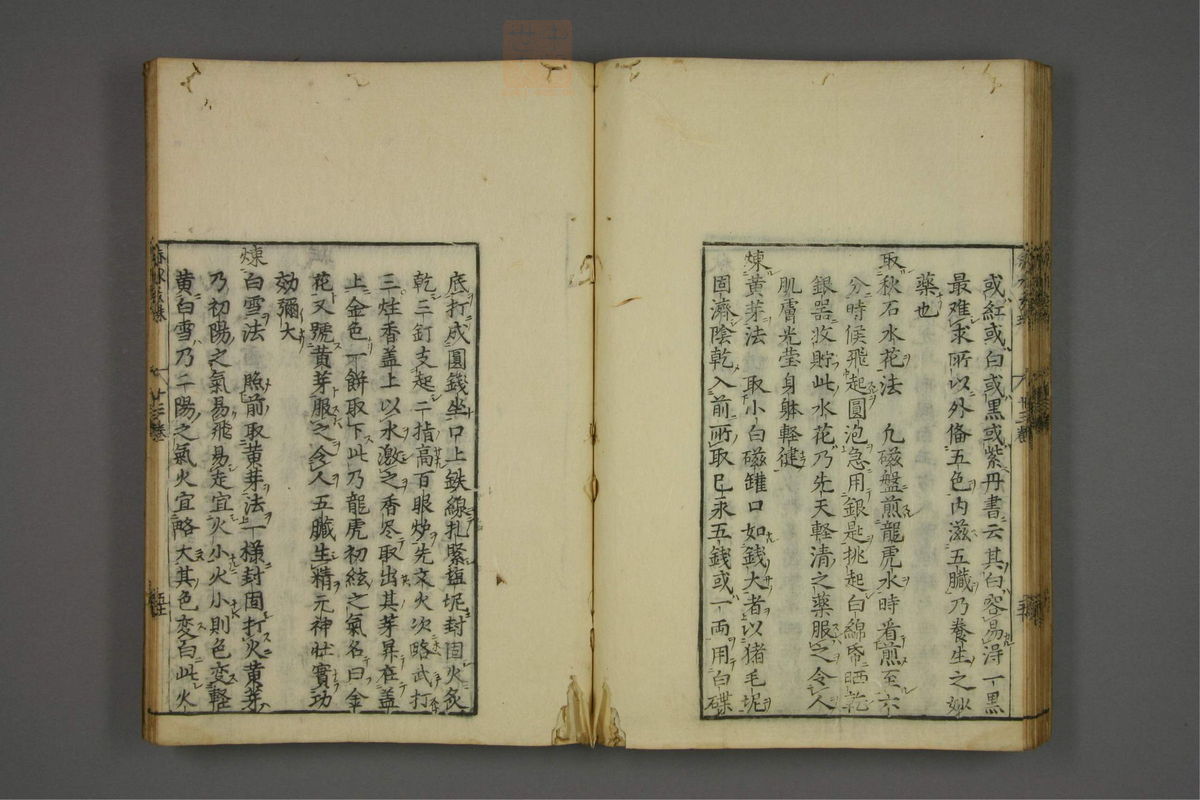 或紅或白或黒或紫丹書云其白容易淂一黒
最难求所以外俻五色内滋五臓乃養生之妙
藥也
取秋石水花法　凡磁盤煎龍虎水時看煎至六
分時候飛起圓泡急用銀匙挑起白綿帋晒乾
銀器收貯此水花乃先天軽清之藥服之令人
肌膚光莹身躰軽健
煉黄芽法　取小白磁罐口如錢大者以猪毛坭
固濟陰乾入前所取巳汞五錢或一両用白碟
底打成圓錢坐口上鉄線扎緊塩坭封固火炙
乾二釘支起二指高百眼炉先文火次略武打
三炷香盖上以水激之香尽取出其芽昇在盖
上金色一餅取下此乃龍虎初絃之氣名曰金
花又號黄芽服之令人五臓生精元神壮實功
効彌大
煉白雪法　照前取黄芽法一様封固打火黄芽
乃初陽之氣易飛易走宜火小火小則色变軽
黄白雪乃二陽之氣火宜略大其色变白此火